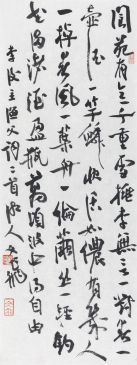 閬苑有情千重雪桃李無言一隊春一
壺酒一竿鱗快活如儂有幾人
一棹春風一葉舟一綸繭縷一輕鉤
花滿渚酒盈瓶萬頃波中得自由
李後主漁父詞二首